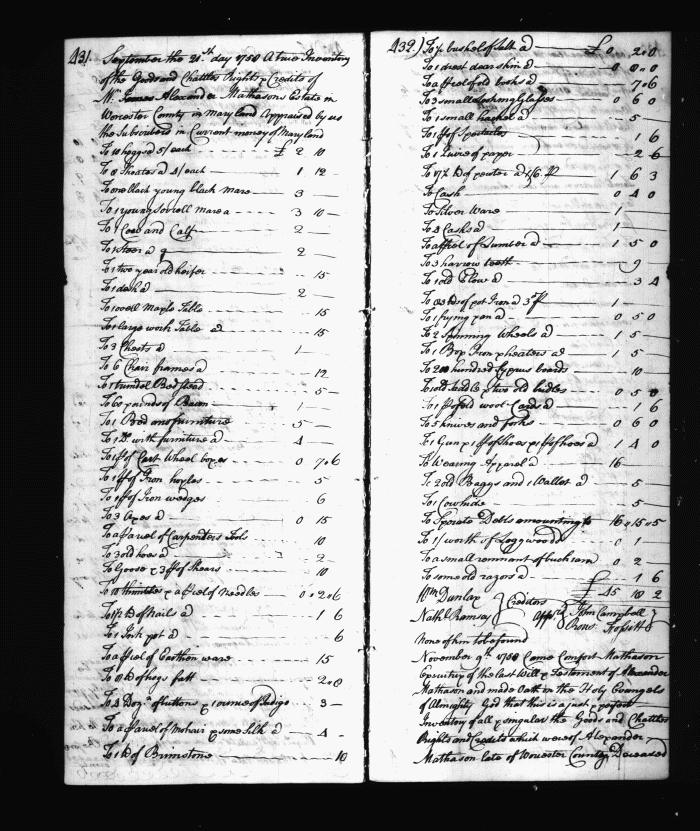 431.
September the 21th day 1750 A true Inventory
of the Goods and Chattles Rights & Credits of
Mr. James Alexander Mathasons Estate in
Worcester County in Maryland Appraised by us
the Subscribers in Current money of Maryland
To 10 hoggs a 5/ each £ 2 10
To 8 Sheates a 4/ each 1 12 -
To one black young black mare 3
To 1 young Sorrell mare a 3 10 -
To 1 Cow and Calf 2
To 1 Steer a 2
To 1 two year old heifer 15
To 1 desk a 2
To 1 Maple Table 15
To 1 large work Table a 15
To 3 Chests a 1
To 6 Chair frames a 12
To 1 trundel Bedstead 5
To 60 pounds of Bacon 1
To 1 Bed and furniture 5
To 1 Do. with furniture a 4
To 1 Cart Wheel boxes 0 7 6
To Iron 5
To of Iron wedges 6
To 3 Axes a 0 15
To a parcel of Carpenters Tools 10
To 3 old hoes a 2
To Goose & 3 of Shears 10
To 10 thimbles & a parcel of needles 0 2 6
To of nails a 1 6
To 1 pot a 6
To a parcel of Earthen ware 15
To of hogs fatt 2 8
To Dozn. of buttons & ounces of Indigo 3
To a parcel of Mohair & some Silk a 4
To of Brimstone 10
432.) To ½ bushel of Salt a £ 0 2 0
To 1 drest dear skin a
To a parcel of old books a 7 6
To 3 small Looking Glasses 0 6 0
To 1 small hackel a 5
To 1 of Spectacles 6
To 1 Quire of paper 2 6
To of pewter a 1/6 1 6 3
To Cash 0 4 0
To Silver Ware 1
To Casks a 1
To a parcel of Lumber a 1 5 0
To 3 harrow teeth 9
To 1 old Plow a 3 4
To of pot Iron a 3 1
To 1 frying pan a 0 5 0
To 2 Spinning Wheels a 1 5
To 1 Box Iron & heaters a 1 5
To 200 hundred Cyprus boards 10
To old saddle & two old bridles 0 5 0
To 1 of old wool Cards a 1 6
To 5 knives and forks 0 6 0
To 1 Gun & 1 of Shoes & of Shoes a 1 4 0
To Wearing Apparel a 16
To 2 old Baggs and 1 Wallet a 5
To 1 Cowhide 5
To Sperate Debts amounting to 16 15 5
To 1/ worth of Loggwoods 0 1
To a small remnant of buckram 0 2
To some old razors a 1 6
Wm Dunlap £ 45 18 2
Nathl. Ramsay } Creditors Appd. by John Campbell
None of kin to be found
November 9th 1750 Came Comfort Mathason
Executrix of the last Will & Testament of Alexander
Mathason and made Oath on the Holy Evangels
of Almighty God that this is a just & perfect
Inventory of all & singular the Goods and Chattles
Rights and Credits which were of Alexander
Mathason late of Worcester County Deceased